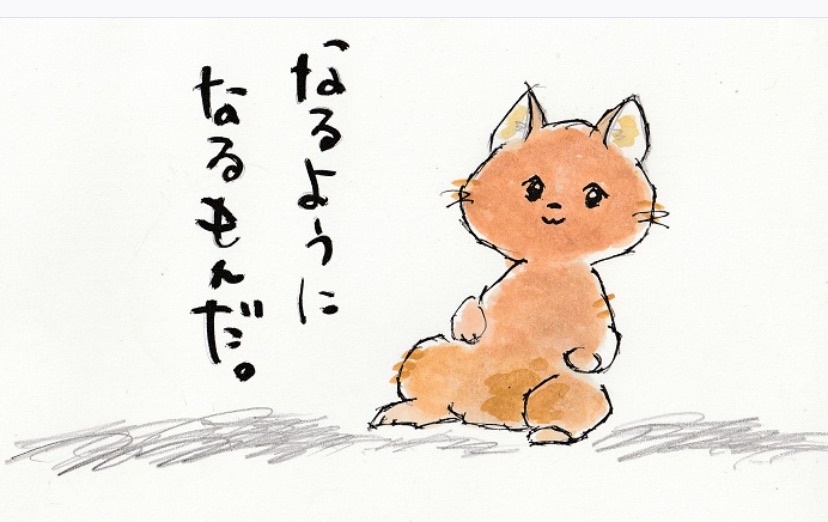 なるように
なるもんだ。